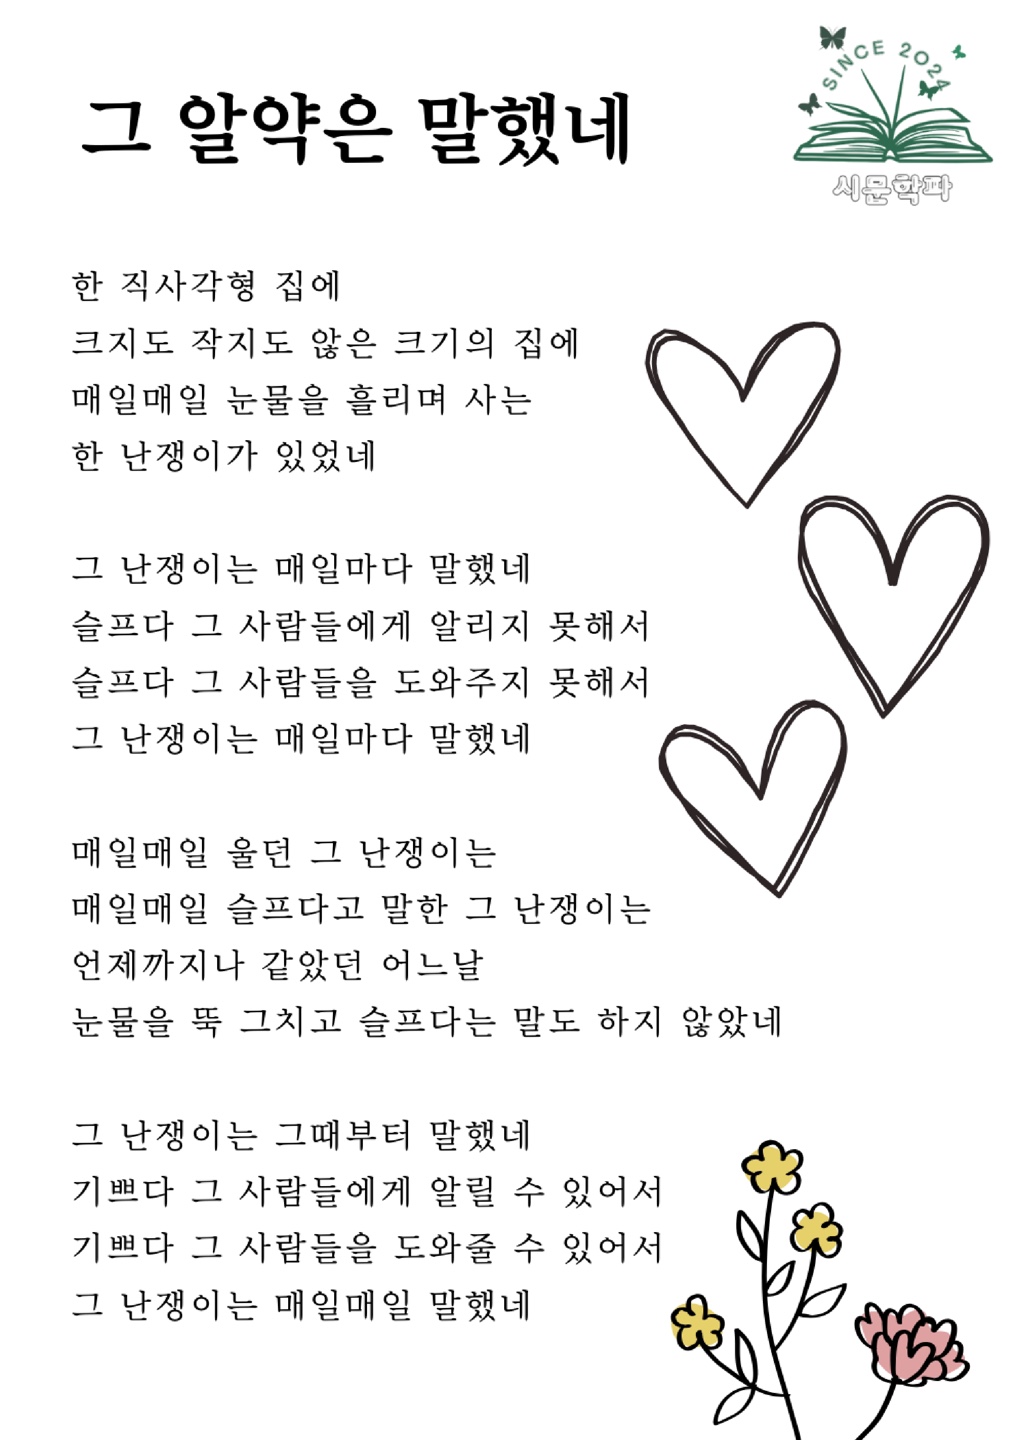 그 알약은 말했네
SINCE 2024
시문학파
한 직사각형 집에
크지도 작지도 않은 크기의 집에
매일매일 눈물을 흘리며 사는
한 난쟁이가 있었네
그 난쟁이는 매일마다 말했네
슬프다 그 사람들에게 알리지 못해서
슬프다 그 사람들을 도와주지 못해서
그 난쟁이는 매일마다 말했네
매일매일 울던 그 난쟁이는
매일매일 슬프다고 말한 그 난쟁이는
언제까지나 같았던 어느날
눈물을 뚝 그치고 슬프다는 말도 하지 않았네
그 난쟁이는 그때부터 말했네
기쁘다 그 사람들에게 알릴 수 있어서
기쁘다 그 사람들을 도와줄 수 있어서
그 난쟁이는 매일매일 말했네